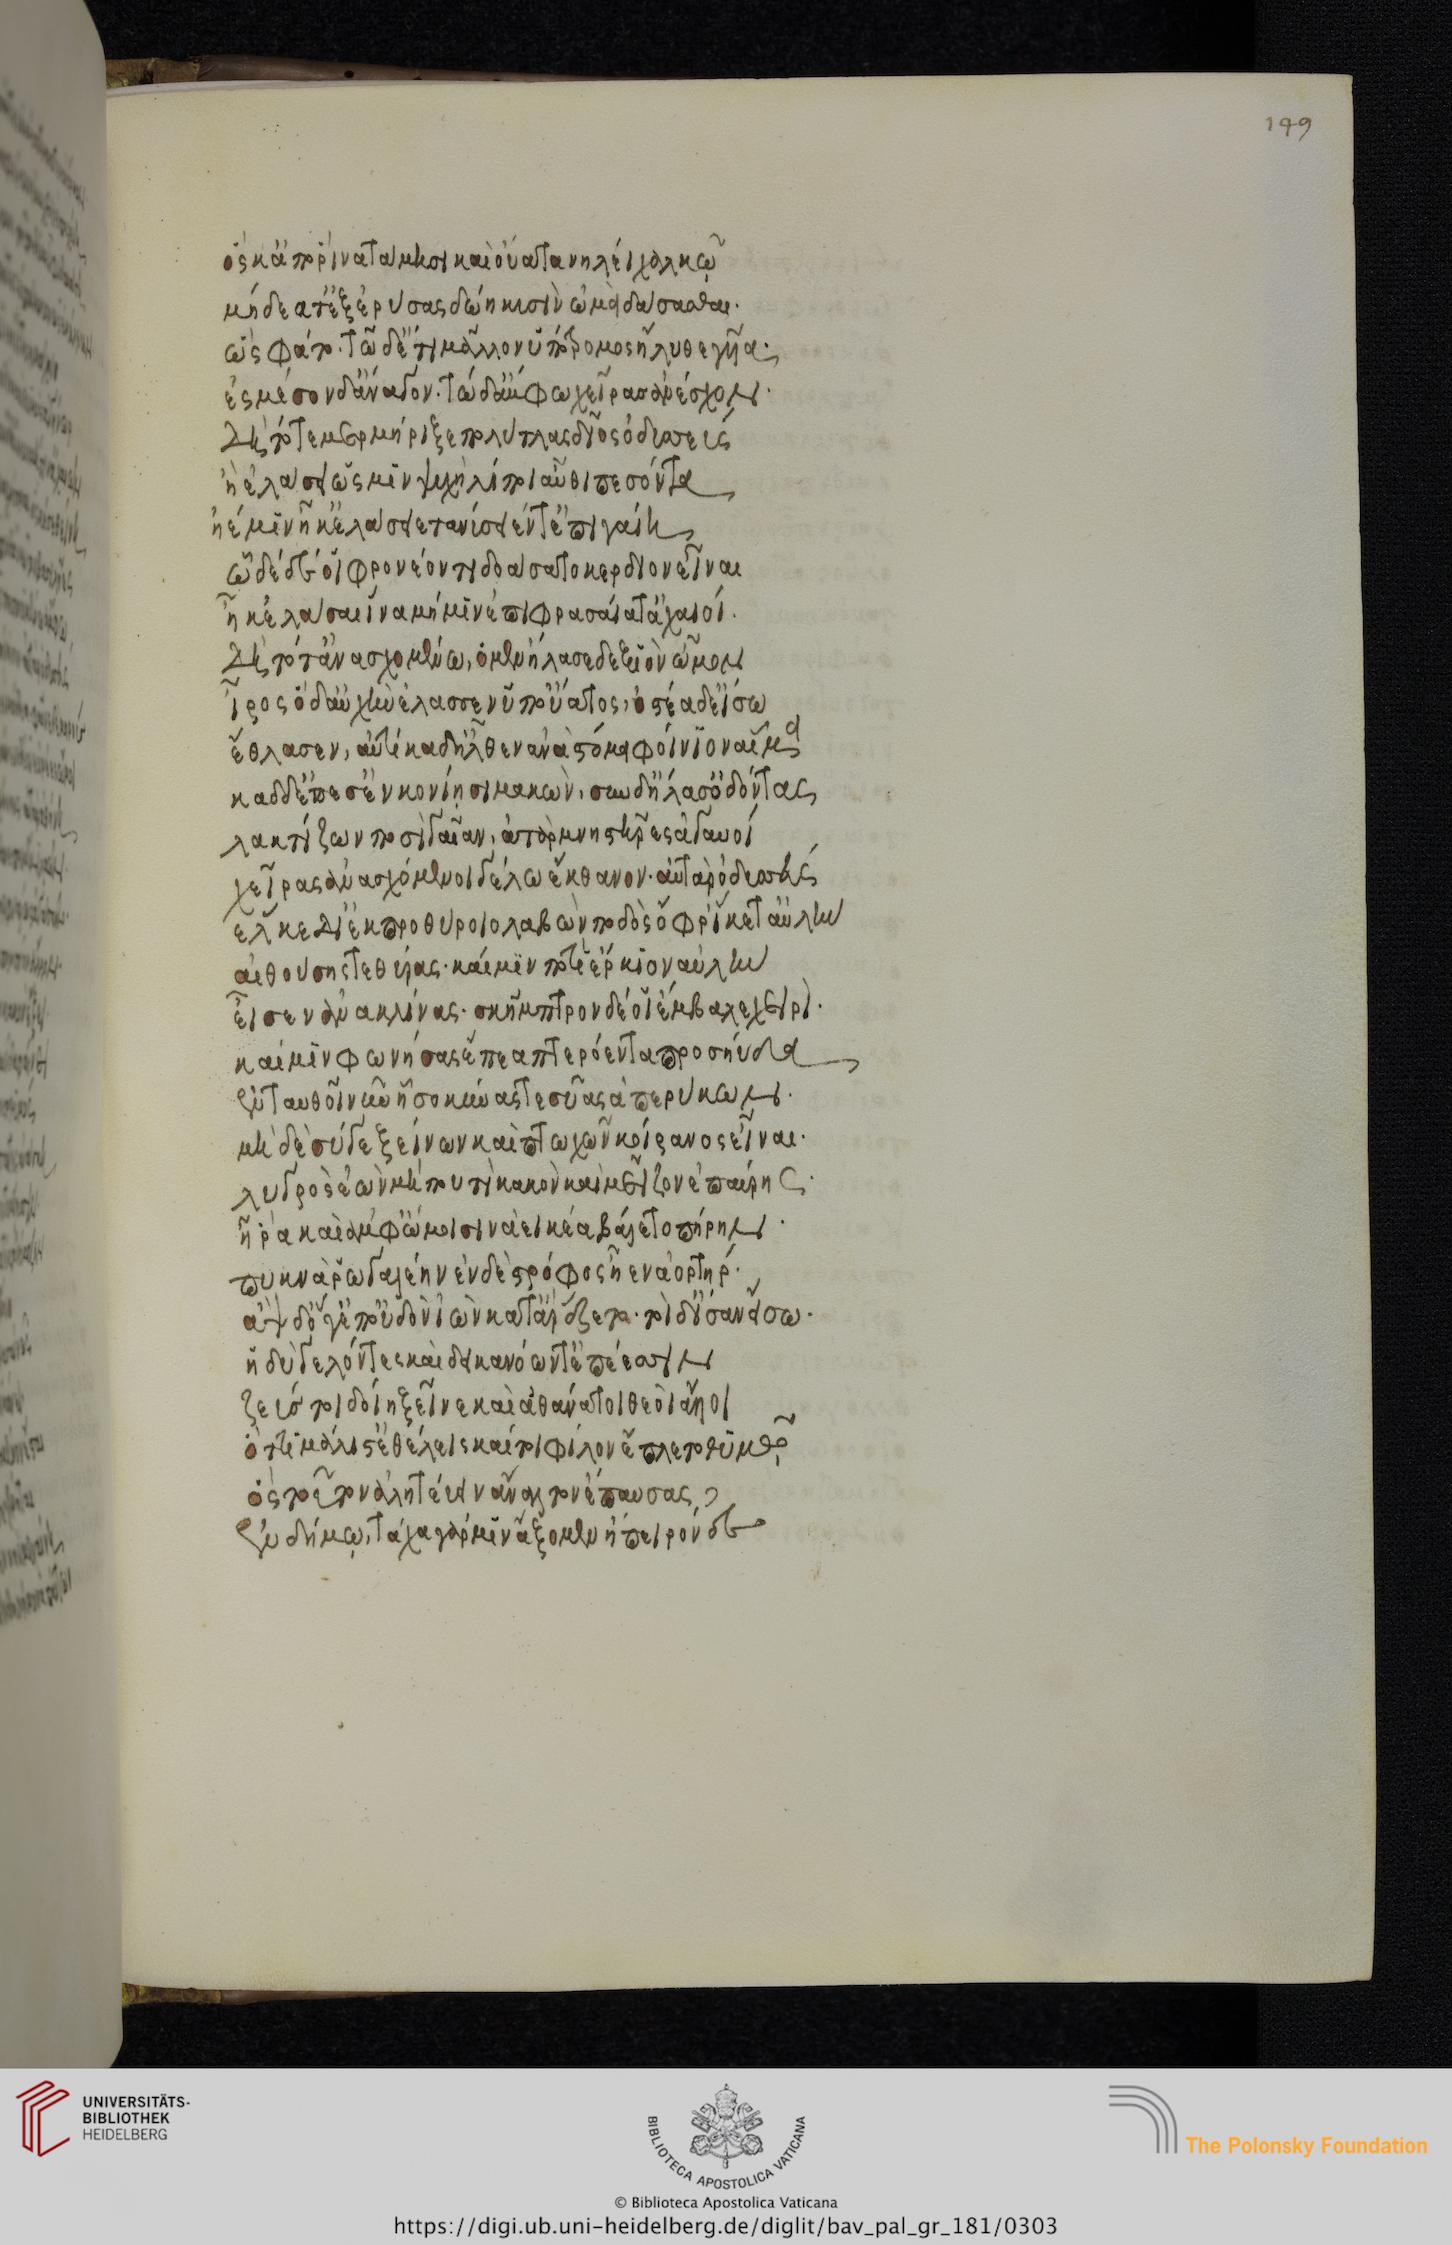 149
ὅς κ' ἀπὸ ῥῖνα τάμῃσι καὶ οὔατα νηλέϊ χαλκῷ
μήδεά τ' ἐξερύσας δώῃ κυσὶν ὠμὰ δάσασθαι.
ὣς φάτο. τῷ δ' ἔτι μᾶλλον ὑπὸ τρόμος ἤλυθε γυῖα.
ἐς μέσον δ' ἄναγον. τὼ δ' ἄμφω χεῖρας ἀνέσχον.
δὴ τότε μερμήριξε πολύτλας δῖος ὀδυσσεύς
ἢ ἐλάσει ὥς μιν ψυχὴ λίποι αὖθι πεσόντα
ἠέ μιν ἦκ' ἐλάσειε τανύσειέν τ' ἐπὶ γαίῃ
ὧδε δέ οἱ φρονέοντι δοάσσατο κέρδιον εἶναι
ἦκ' ἐλάσαι ἵνα μή μιν ἐπιφρασαίατ' ἀχαιοί.
δὴ τότ' ἀνασχομένω, ὁ μὲν ἤλασε δεξιὸν ὦμον
ἶρος ὁ δ' αὐχέν' ἔλασσεν ὑπ' οὔατος, ὀστέα δ' εἴσω
ἔθλασεν, αὐτίκα δ' ἦλθεν ἀνὰ στόμα φοίνιον αἷμα
καδδ' ἔπεσ' ἐν κονίῃσι μακών, σὺν δ' ἤλασ' ὀδόντας
λακτίζων ποσὶ γαῖαν, ἀτὰρ μνηστῆρες ἀγαυοί
χεῖρας ἀνασχόμενοι γέλῳ ἔκθανον. αὐτὰρ ὀδυσσεύς
ἕλκε διὲκ προθύροιο λαβὼν ποδὸς ὄφρ' ἵκετ' αὐλήν
αἰθούσης τε θύρας. καί μιν ποτὶ ἑρκίον αὐλῆς
εἷσεν ἀνακλίνας. σκῆπτρον δέ οἱ ἔμβαλε χειρί.
καί μιν φωνήσας ἔπεα πτερόεντα προσηύδα
ἐνταυθοῖ νῦν ἧσο κύνας τε σύας ἀπερύκων.
μὴ δὲ σύ γε ξείνων καὶ πτωχῶν κοίρανος εἶναι.
λυγρὸς ἐὼν μή πού τι κακὸν καὶ μεῖζον ἐπαύρῃς.
ἦ ῥα καὶ ἀμφ' ὤμοισιν ἀεικέα βάλλετο πήρην.
πυκνὰ ῥωγαλέην ἐν δὲ στρόφος ἦεν ἀορτήρ.
ἂψ δ' ὅ γ' ἐπ' οὐδὸν ἰὼν κατ' ἄρ' ἕζετο. τοὶ δ' ἴσαν εἴσω.
ἡδὺ γελόωντες καὶ δεικανόωντ' ἐπέεσσιν
ζεύς τοι δοίη ξεῖνε καὶ ἀθάνατοι θεοὶ ἄλλοι
ὅττι μάλιστ' ἐθέλεις καί τοι φίλον ἔπλετο θυμῷ
ὃς τοῦτον τὸν ἄναλτον ἀλητεύειν ἀπέπαυσας
ἐν δήμῳ, τάχα γάρ μιν ἀνάξομεν ἤπειρόνδε
UNIVERSITÄTS-
BIBLIOTHEK
HEIDELBERG
BIBLIOTECA APOSTOLICA VATICANA
The Polonsky Foundation
© Biblioteca Apostolica Vaticana
https://digi.ub.uni-heidelberg.de/diglit/bav_pal_gr_181/0303